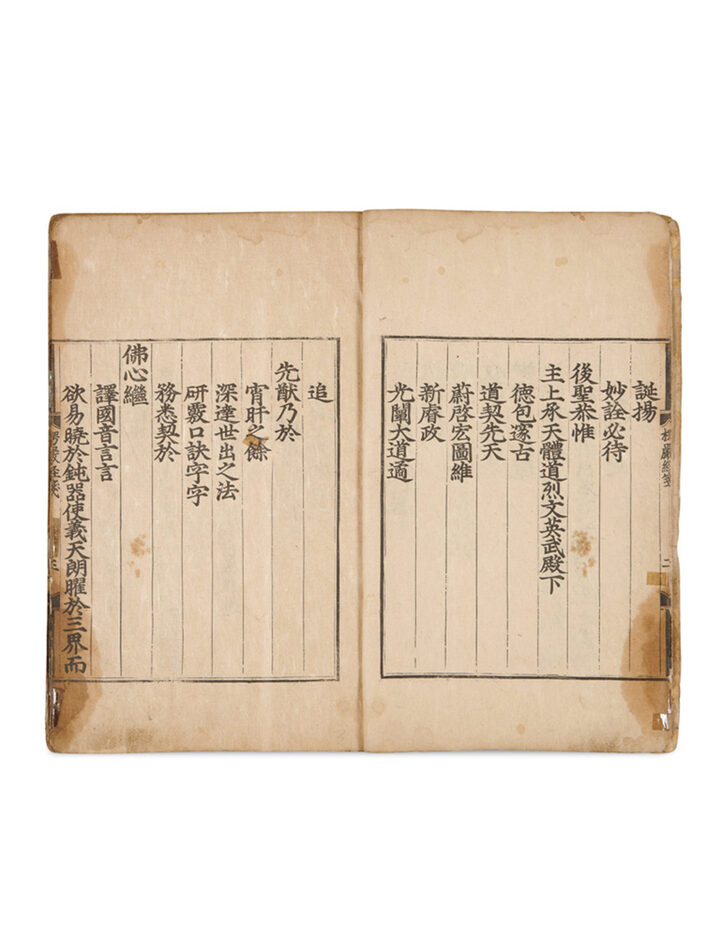 嚴經 二
誕揚
妙詮必待
後聖恭惟
主上承天體道烈文英武殿下
德包邃古
道契先天
蔚啓宏圖維
新睿政
光闡大道適
追
先猷乃於
宵旰之餘
深達世出之法
研覈口訣字字
務悉契於
佛心繼
譯國音言言
欲易曉於鈍器使義天朗曜於三界而
三